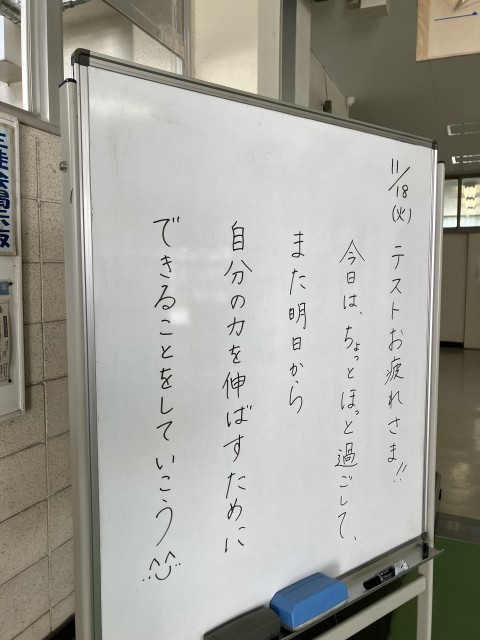 11/18(火) テストお疲れさま!!
今日は、ちょっとほっと過ごして、
また明日から
自分の力を伸ばすために
できることをしていこう
生徒会掲示板